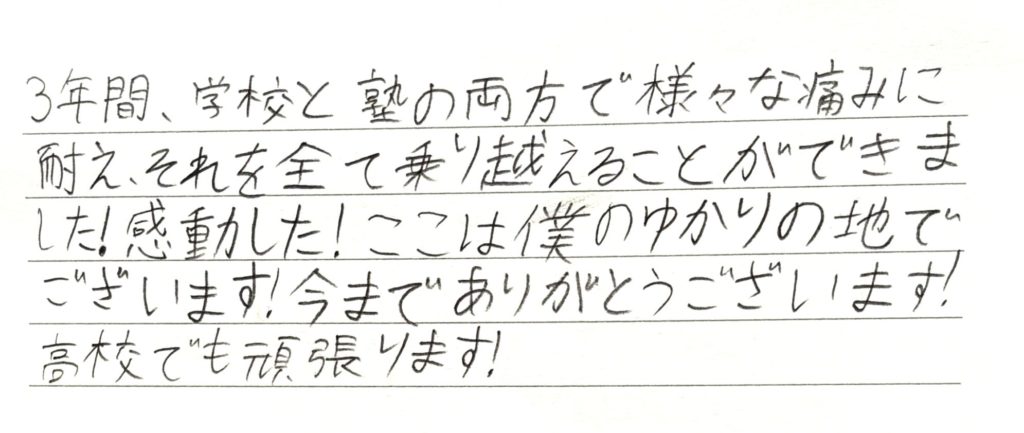 3年間、学校と塾の両方で様々な痛みに
耐え、それを全て乗り越えることができま
した!感動した!ここは僕のゆかりの地で
ございます!今までありがとうございます!
高校でも頑張ります!